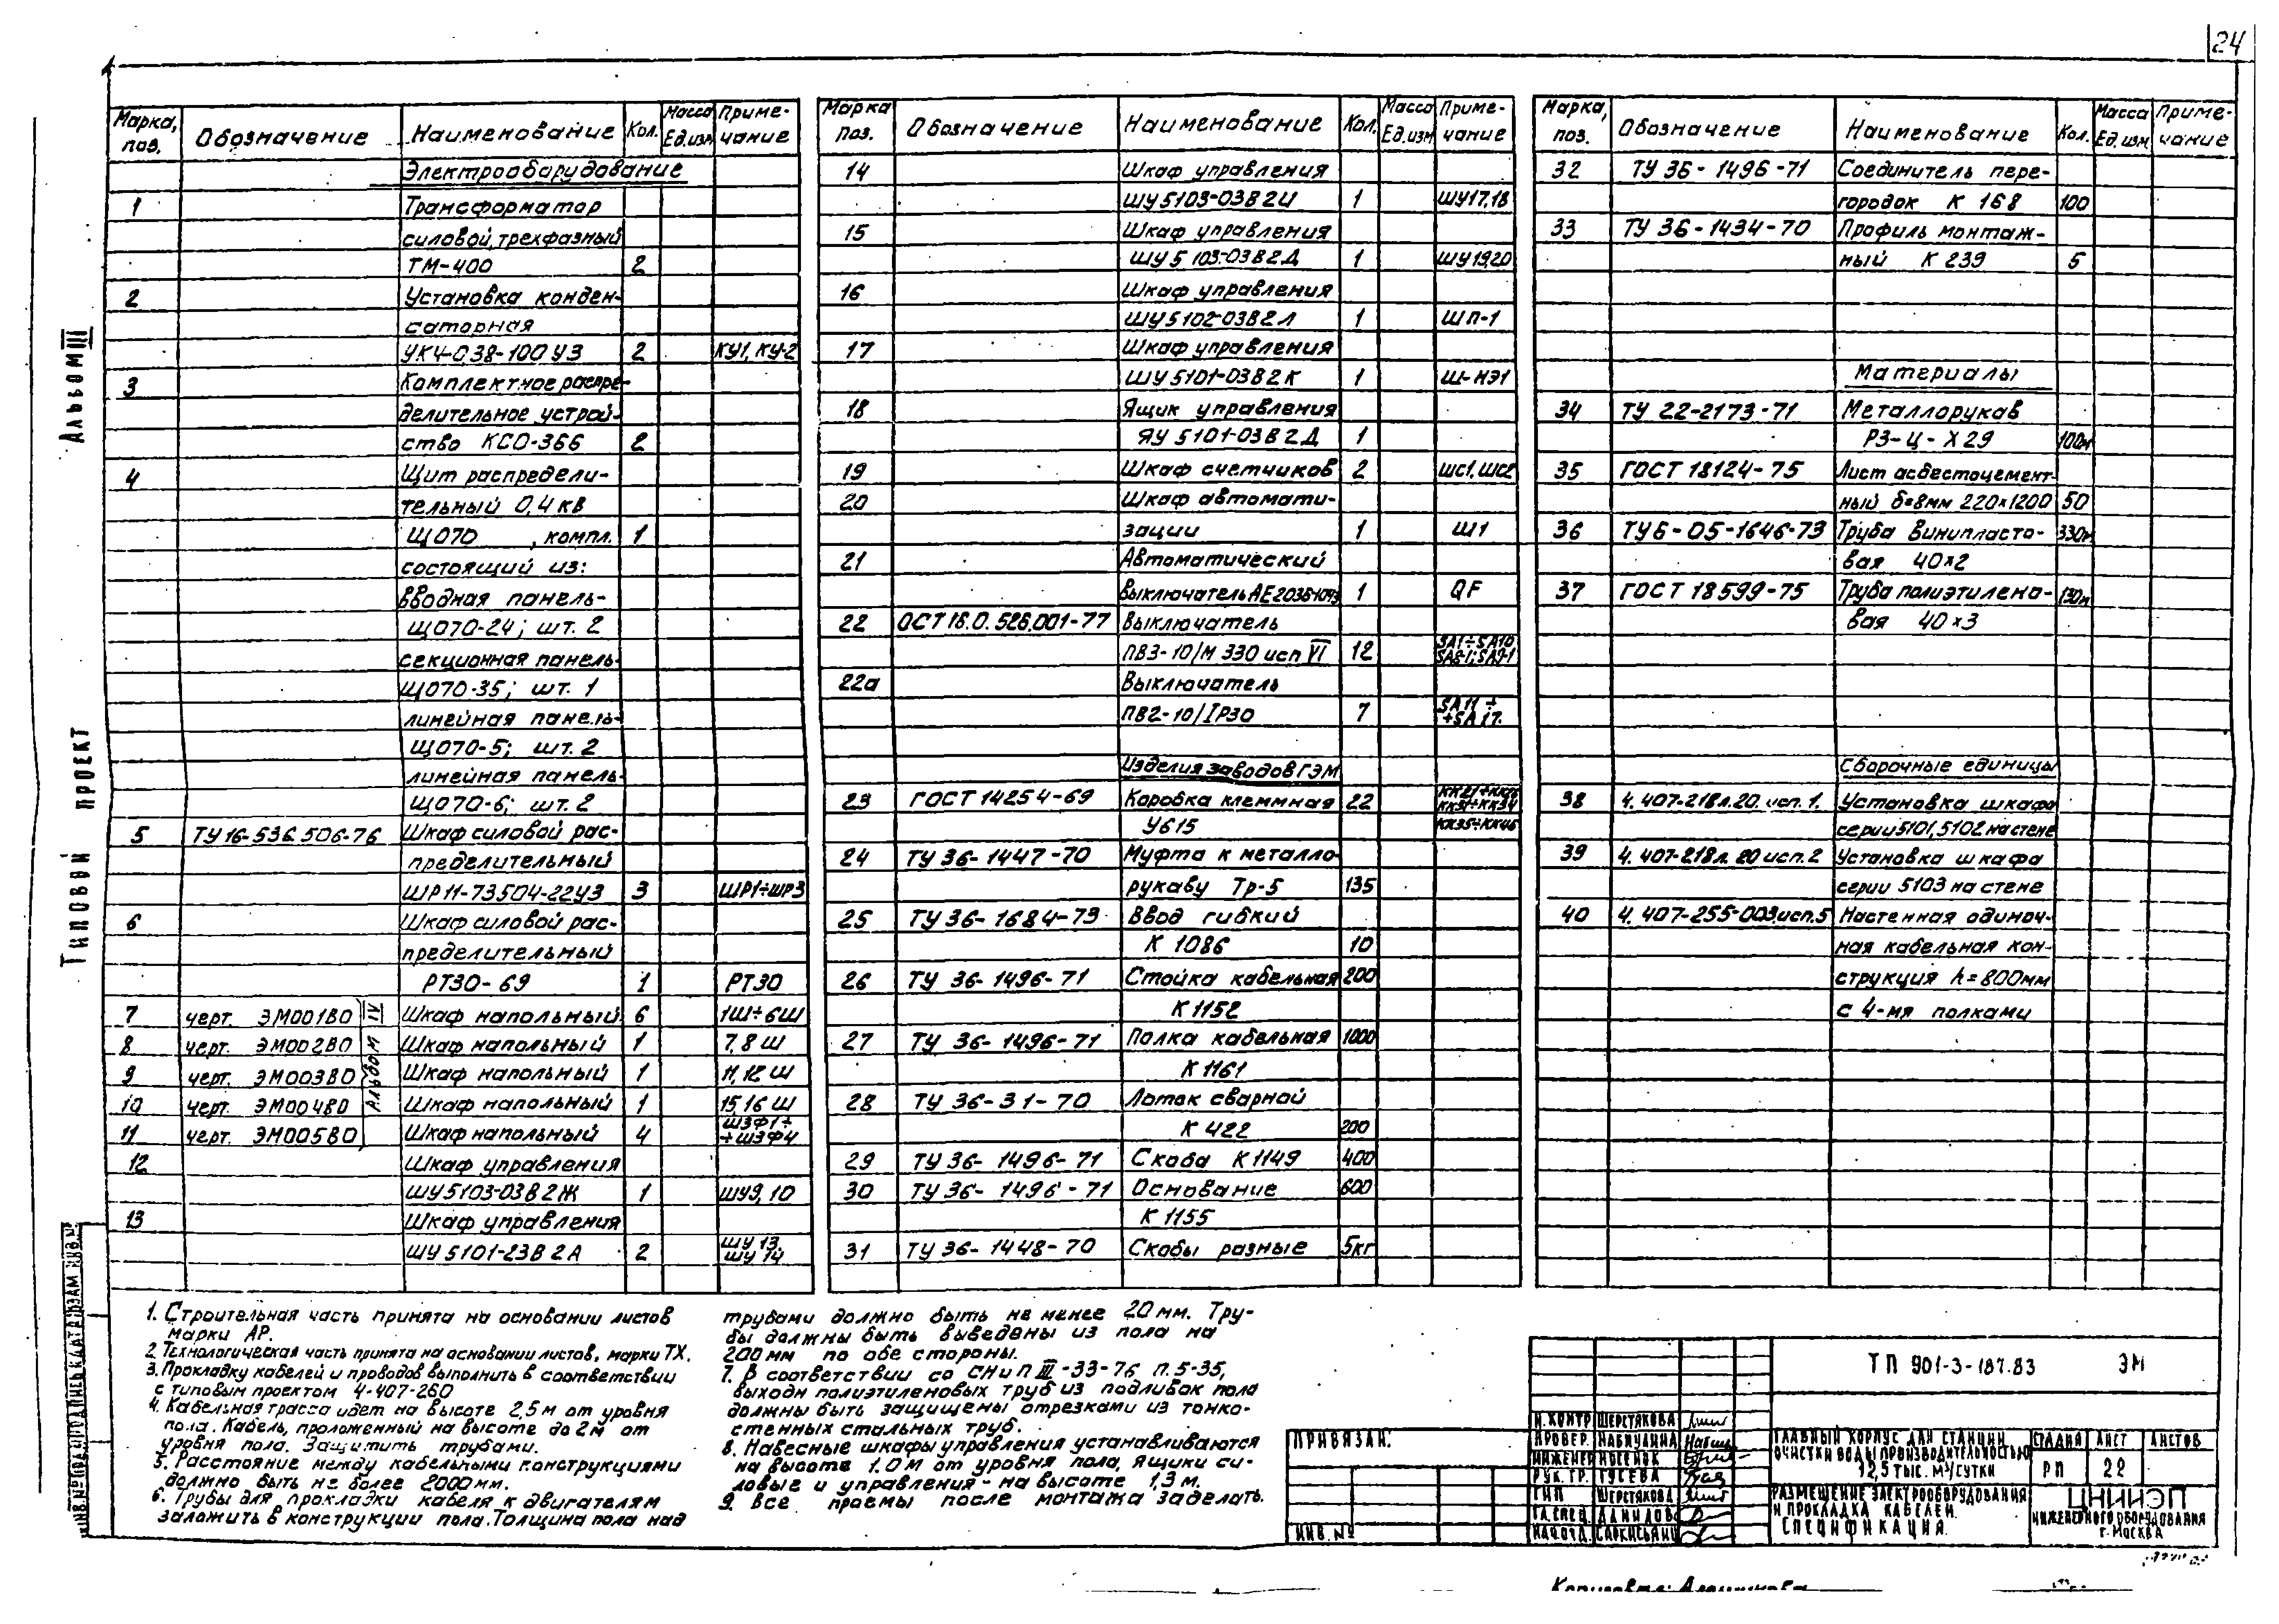 24
Альбом III
Типовой проект
Марка, поз. Обозначение Наименование Кол. Масса Ед.изм Приме-чание
Электрооборудование
1 Трансформатор
силовой, трехфазный
ТМ-400 2
2 Установка конден-
саторная
УК4-0,38-100 У3 2 КУ1, КУ-2
3 Комплектное распре-
делительное устрой-
ство КСО-366 2
4 Щит распредели-
тельный 0,4 кв
ЩО70 , компл. 1
состоящий из:
вводная панель-
ЩО70-24; шт. 2
секционная панель-
ЩО70-35; шт. 1
линейная панель-
ЩО70-5; шт. 2
линейная панель-
ЩО70-6; шт. 2
5 ТУ16-536.506-76 Шкаф силовой рас-
пределительный
ШР11-73504-22У3 3 ШР1÷ШР3
6 Шкаф силовой рас-
пределительный
РТ30-69 1 РТ30
7 черт. ЭМ001ВО Шкаф напольный 6 1Ш÷6Ш
8 черт. ЭМ002ВО Шкаф напольный 1 7,8 Ш
9 черт. ЭМ003ВО Шкаф напольный 1 11,12 Ш
10 черт. ЭМ004ВО Шкаф напольный 1 15,16 Ш
11 черт. ЭМ005ВО Шкаф напольный 4 ШЗФ1÷ ÷ШЗФ4
Альбом IV
12 Шкаф управления
ШУ5103-03В2Ж 1 ШУ9, 10
13 Шкаф управления
ШУ5101-23В2А 2 ШУ 13, ШУ 14
Марка поз. Обозначение Наименование Кол. Масса Ед.изм Приме-чание
14 Шкаф управления
ШУ5103-03В2И 1 ШУ17,18
15 Шкаф управления
ШУ5103-03В2Д 1 ШУ19,20
16 Шкаф управления
ШУ5102-03В2Л 1 ШП-1
17 Шкаф управления
ШУ5101-03В2К 1 Ш-НЭ1
18 Ящик управления
ЯУ5101-03В2Д 1
19 Шкаф счетчиков 2 ШС1, ШС2
20 Шкаф автомати-
зации 1 Ш1
21 Автоматический
выключатель АЕ2038-10У3 1 QF
22 ОСТ 16.0.526.001-77 Выключатель
ПВ3-10/М 330 исп VI 12 SA1÷SA10 SA8-1; SA9-1
22а Выключатель
ПВ2-10/IP30 7 SA11÷ ÷SA17.
Изделия заводов ГЭМ
23 ГОСТ 14254-69 Коробка клеммная 22 КК31÷КК34
У615 КК35÷КК46
24 ТУ 36-1447-70 Муфта к металло-
рукаву Тр-5 135
25 ТУ 36-1684-73 Ввод гибкий
К 1086 10
26 ТУ 36-1496-71 Стойка кабельная 200
К 1152
27 ТУ 36-1496-71 Полка кабельная 1000
К 1161
28 ТУ 36-31-70 Лоток сварной
К 422 200
29 ТУ 36-1496-71 Скоба К 1149 400
30 ТУ 36-1496-71 Основание 600
К 1155
31 ТУ 36-1448-70 Скобы разные 5кг
Марка, поз. Обозначение Наименование Кол. Масса Ед.изм Приме-чание
32 ТУ 36-1496-71 Соединитель пере-
городок К 168 100
33 ТУ 36-1434-70 Профиль монтаж-
ный К 239 5
Материалы
34 ТУ 22-2173-71 Металлорукав
РЗ-Ц-Х 29 100м
35 ГОСТ 18124-75 Лист асбестоцемент-
ный б=8мм 220х1200 50
36 ТУ6-05-1646-73 Труба винипласто- 330м
вая 40х2
37 ГОСТ 18599-75 Труба полиэтилено- 130м
вая 40х3
Сборочные единицы
38 4.407-218л.20.исп.1. Установка шкафа
серии 5101, 5102 на стене
39 4.407-218л.20 исп.2 Установка шкафа
серии 5103 на стене
40 4.407-255-003.исп.5 Настенная одиноч-
ная кабельная кон-
струкция h=800мм
с 4-мя полками
1. Строительная часть принята на основании листов
марки АР.
2. Технологическая часть принята на основании листов, марки ТХ.
3. Прокладку кабелей и проводов выполнить в соответствии
с типовым проектом 4-407-260
4. Кабельная трасса идет на высоте 2,5м от уровня
пола. Кабель, проложенный на высоте до 2м от
уровня пола. Защитить трубами.
5. Расстояние между кабельными конструкциями
должно быть не более 2000мм.
6. Трубы для прокладки кабеля к двигателям
заложить в конструкции пола. Толщина пола над
трубами должно быть не менее 20мм. Тру-
бы должны быть выведены из пола на
200мм по обе стороны.
7. В соответствии со СНиП III-33-76 п.5-35,
выходы полиэтиленовых труб из подливок пола
должны быть защищены отрезками из тонко-
стенных стальных труб.
8. Навесные шкафы управления устанавливаются
на высоте 1.0м от уровня пола, ящики си-
ловые и управления - на высоте 1,3 м.
9. Все проемы после монтажа заделать.
ПРИВЯЗАН:
ИНВ.№
ТП 901-3-187.83 ЭМ
Н.КОНТР ШЕРСТЯКОВА
ПРОВЕР. НАБИУЛИНА
ИНЖЕНЕР НОСЕНОК
РУК.ГР. ГУСЕВА
ГИП ШЕРСТЯКОВА
ГЛ.СПЕЦ ДАНИЛОВ
НАЧ.ОТД. САРКИСЬЯНЦ
ГЛАВНЫЙ КОРПУС ДЛЯ СТАНЦИИ
ОЧИСТКИ ВОДЫ ПРОИЗВОДИТЕЛЬНОСТЬЮ
12,5 ТЫС. М³/СУТКИ
СТАДИЯ ЛИСТ ЛИСТОВ
РП 22
РАЗМЕЩЕНИЕ ЭЛЕКТРООБОРУДОВАНИЯ
И ПРОКЛАДКА КАБЕЛЕЙ.
СПЕЦИФИКАЦИЯ.
ЦНИИЭП
ИНЖЕНЕРНОГО ОБОРУДОВАНИЯ
г. МОСКВА